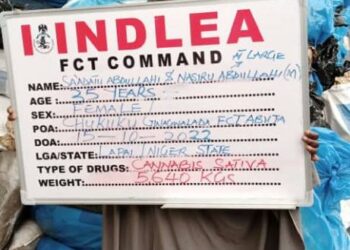 NDLEA
FCT COMMAND
NAME: SANDANI ABDULLAHI & NASIRU ABDULLAHI (M) AT LARGE
AGE : 35 YEARS
SEX: FEMALE
POA: CHUKUKU GWAGWALADA FCT ABUJA
DOA: 15-10-2022
LGA/STATE: LAPAI / NIGER STATE
TYPE OF DRUGS: CANNABIS SATIVA
WEIGHT: 5640 KGS